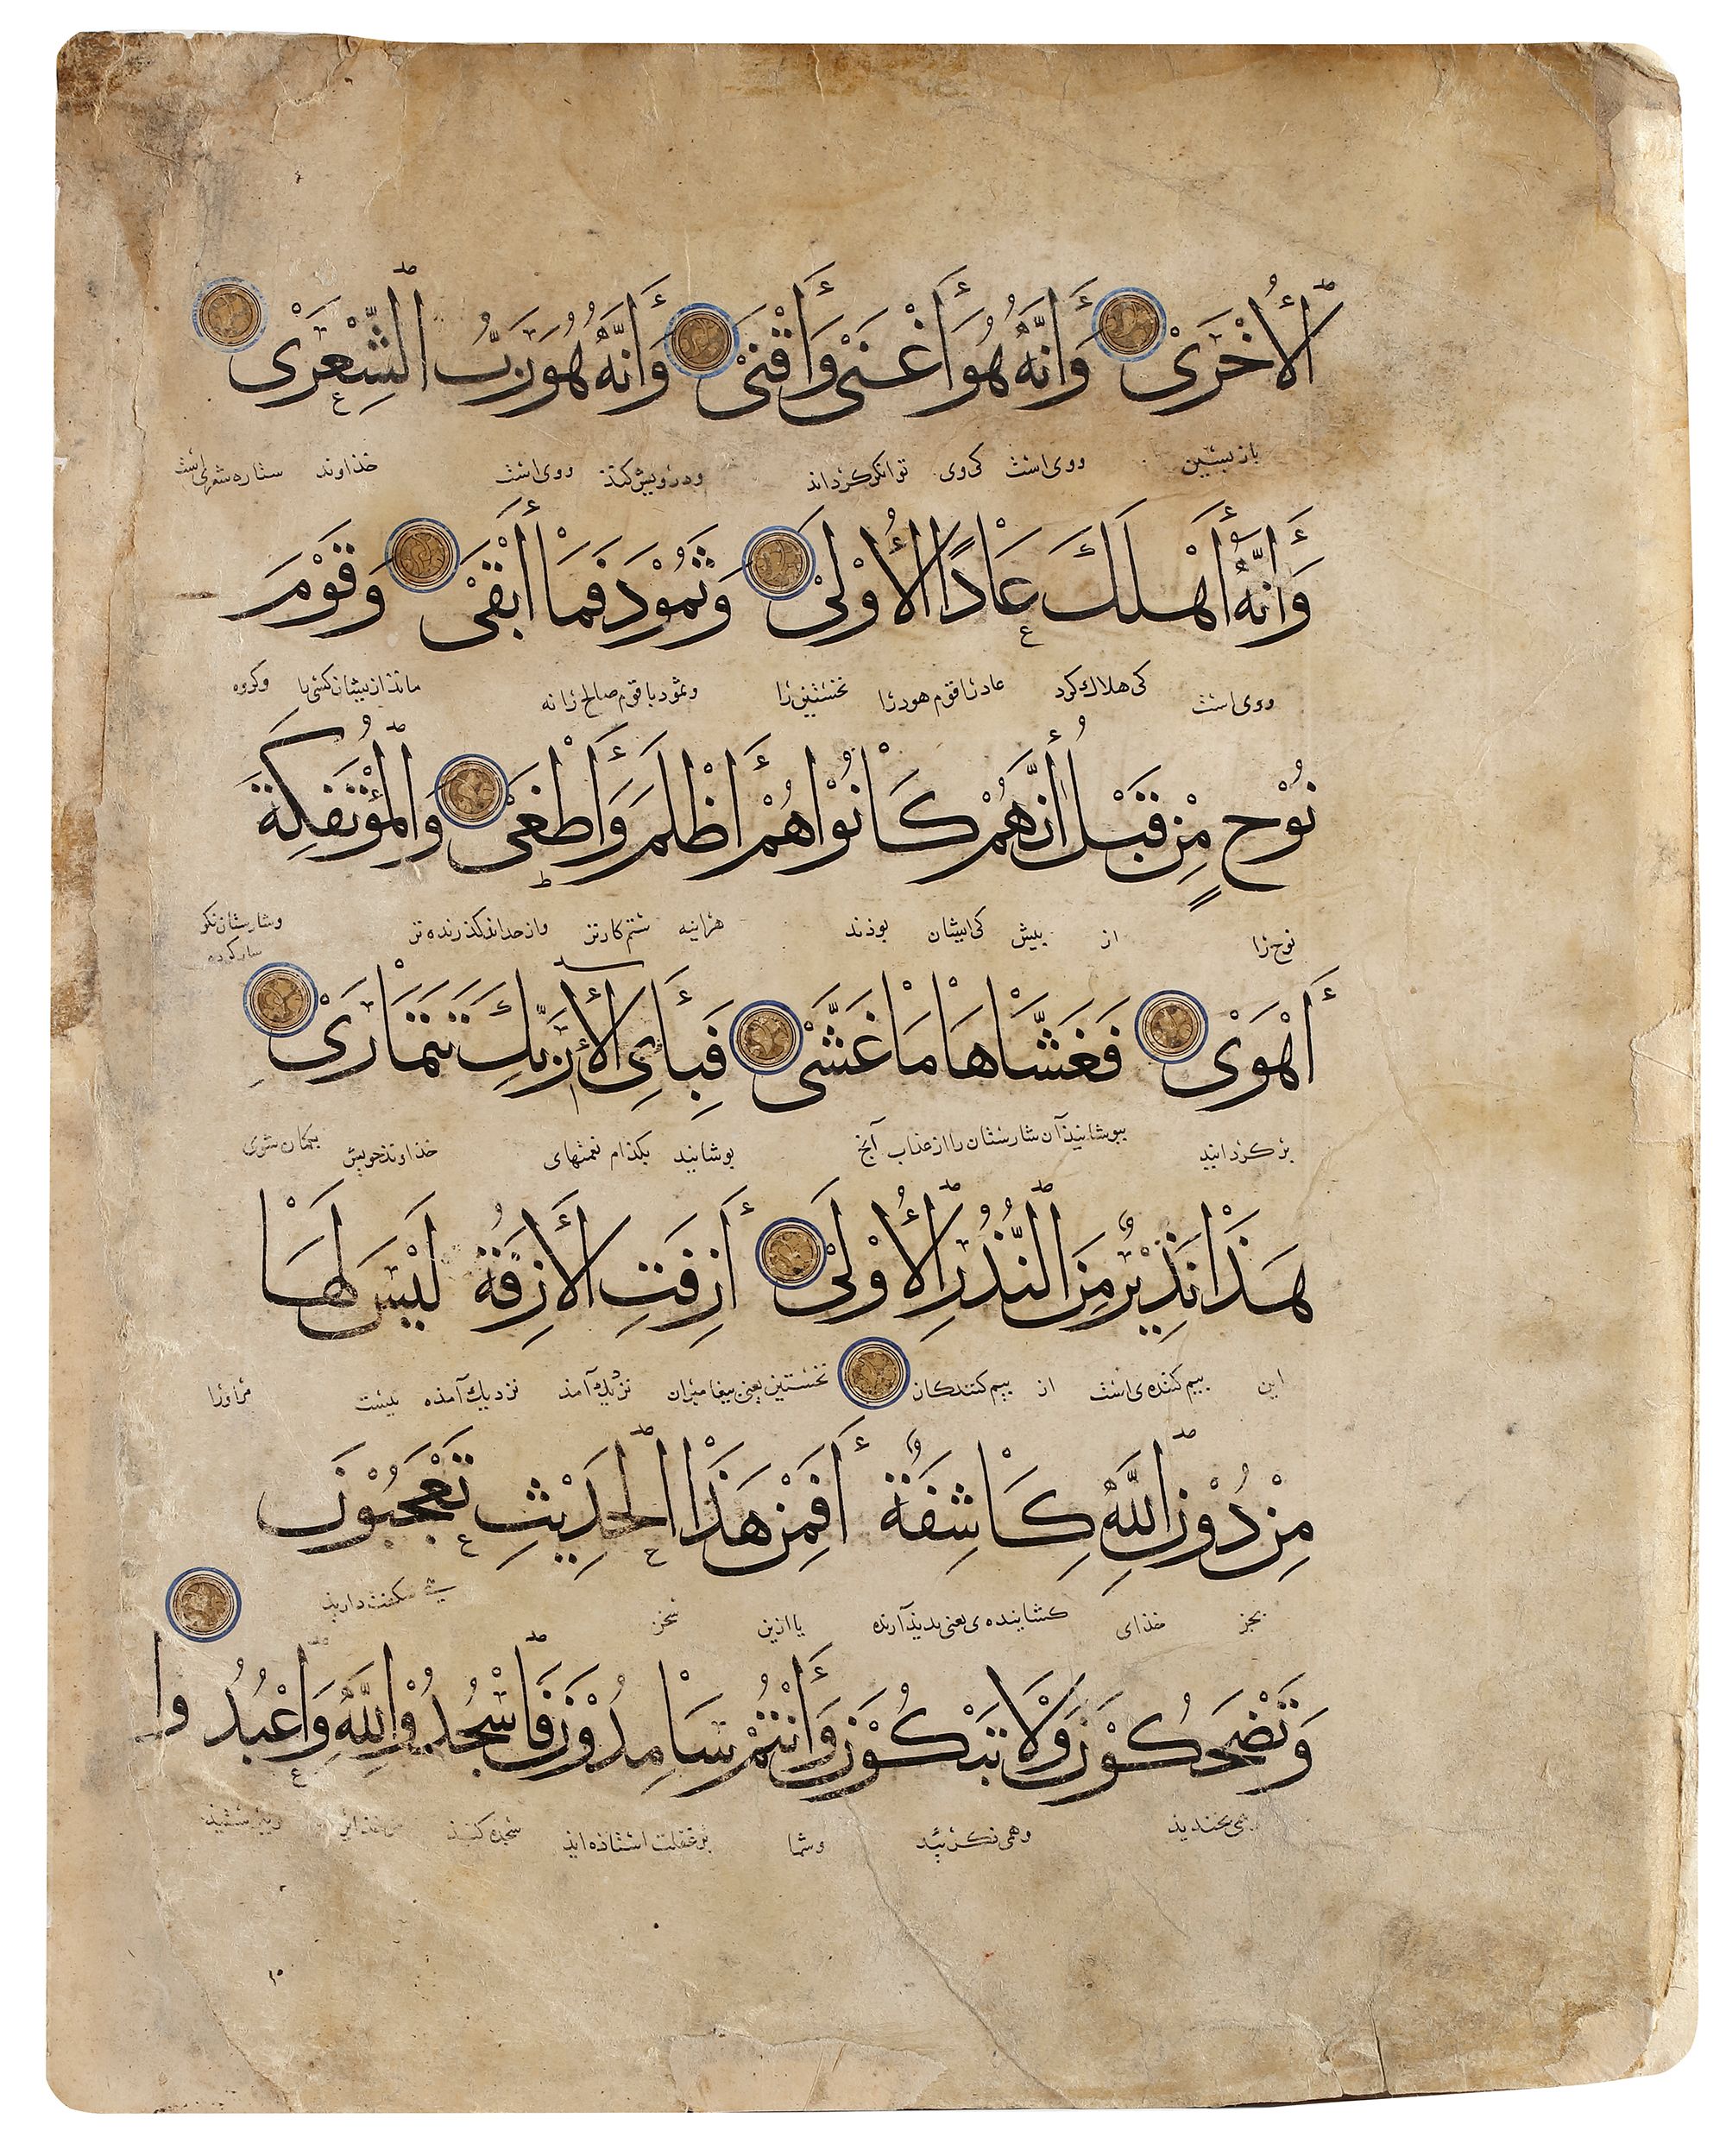 ٱلْأُخْرَىْ وَأَنَّهُ هُوَ أَغْنَىْ وَأَقْنَىْ وَأَنَّهُ هُوَ رَبُّ ٱلشِّعْرَىْ
بازپسین ووی‌است کی‌وی توانگرکرداند ودرویش‌کند ووی‌است خذاوند ستاره‌شعری‌است
وَأَنَّهُ أَهْلَكَ عَاْدًا ٱلْأُوْلَىْ وَثَمُوْدَ فَمَاْ أَبْقَىْ وَقَوْمَ
ووی‌است کی هلاک‌کرد عادرا قوم هودرا نخستین‌را وثمود با قوم صالح‌را نه ماند از یشان کسی‌را وکروه
نُوْحٍ مِنْ قَبْلُ أَنَّهُمْ كَاْنُوْا هُمْ أَظْلَمَ وَأَطْغَىْ وَٱلْمُؤْتَفِكَةَ
نوح‌را از پیش کی‌ایشان بوذند هراینه ستم‌کارتر واز حد اندرگذرنده‌تر وشارستان نگو
سار کرده
أَهْوَىْ فَغَشَّاهَاْ مَاْ غَشَّىْ فَبِأَيِ ٱلْأَۤ رَبِّكَ تَتَمَاْرَىْ
برکردانید بپوشانیذ آن شارستان را از عذاب آنچ پوشانید بکذام نعمتهای خذاوندخویش بکمان شوی
هَذَاْ نَذِيْرٌ مِنَ ٱلنُّذُرِ ٱلْأُوْلَىْ أَزِفَتِ ٱلْأَزِفَةُ لَيْسَ لَهَاْ
این بیم کننده‌ی‌است از بیم‌کنندکان نخستین یعنی پیغامبران نزدیک‌آمذ نزدیک‌آمذه نیست مراورا
مِنْ دُوْنِ ٱللَّهِ كَاْشِفَةٌ أَفَمِنْ هَذَاْ ٱلْحَدِيْثِ تَعْجَبُوْنَ
بجز خذای کشاینده‌ی یعنی بدیذآرنده یا ازین سخن شکفت داریذ
وَتَضْحَكُوْنَ وَلَاْ تَبْكُوْنَ وَأَنْتُمْ سَاْمِدُوْنَ فَٱسْجُدُوْا لِلَّهِ وَٱعْبُدُوا
می‌خندیذ وهمی‌نکریید وشما برغفلت استاذه‌ایذ سجده‌کنیذ